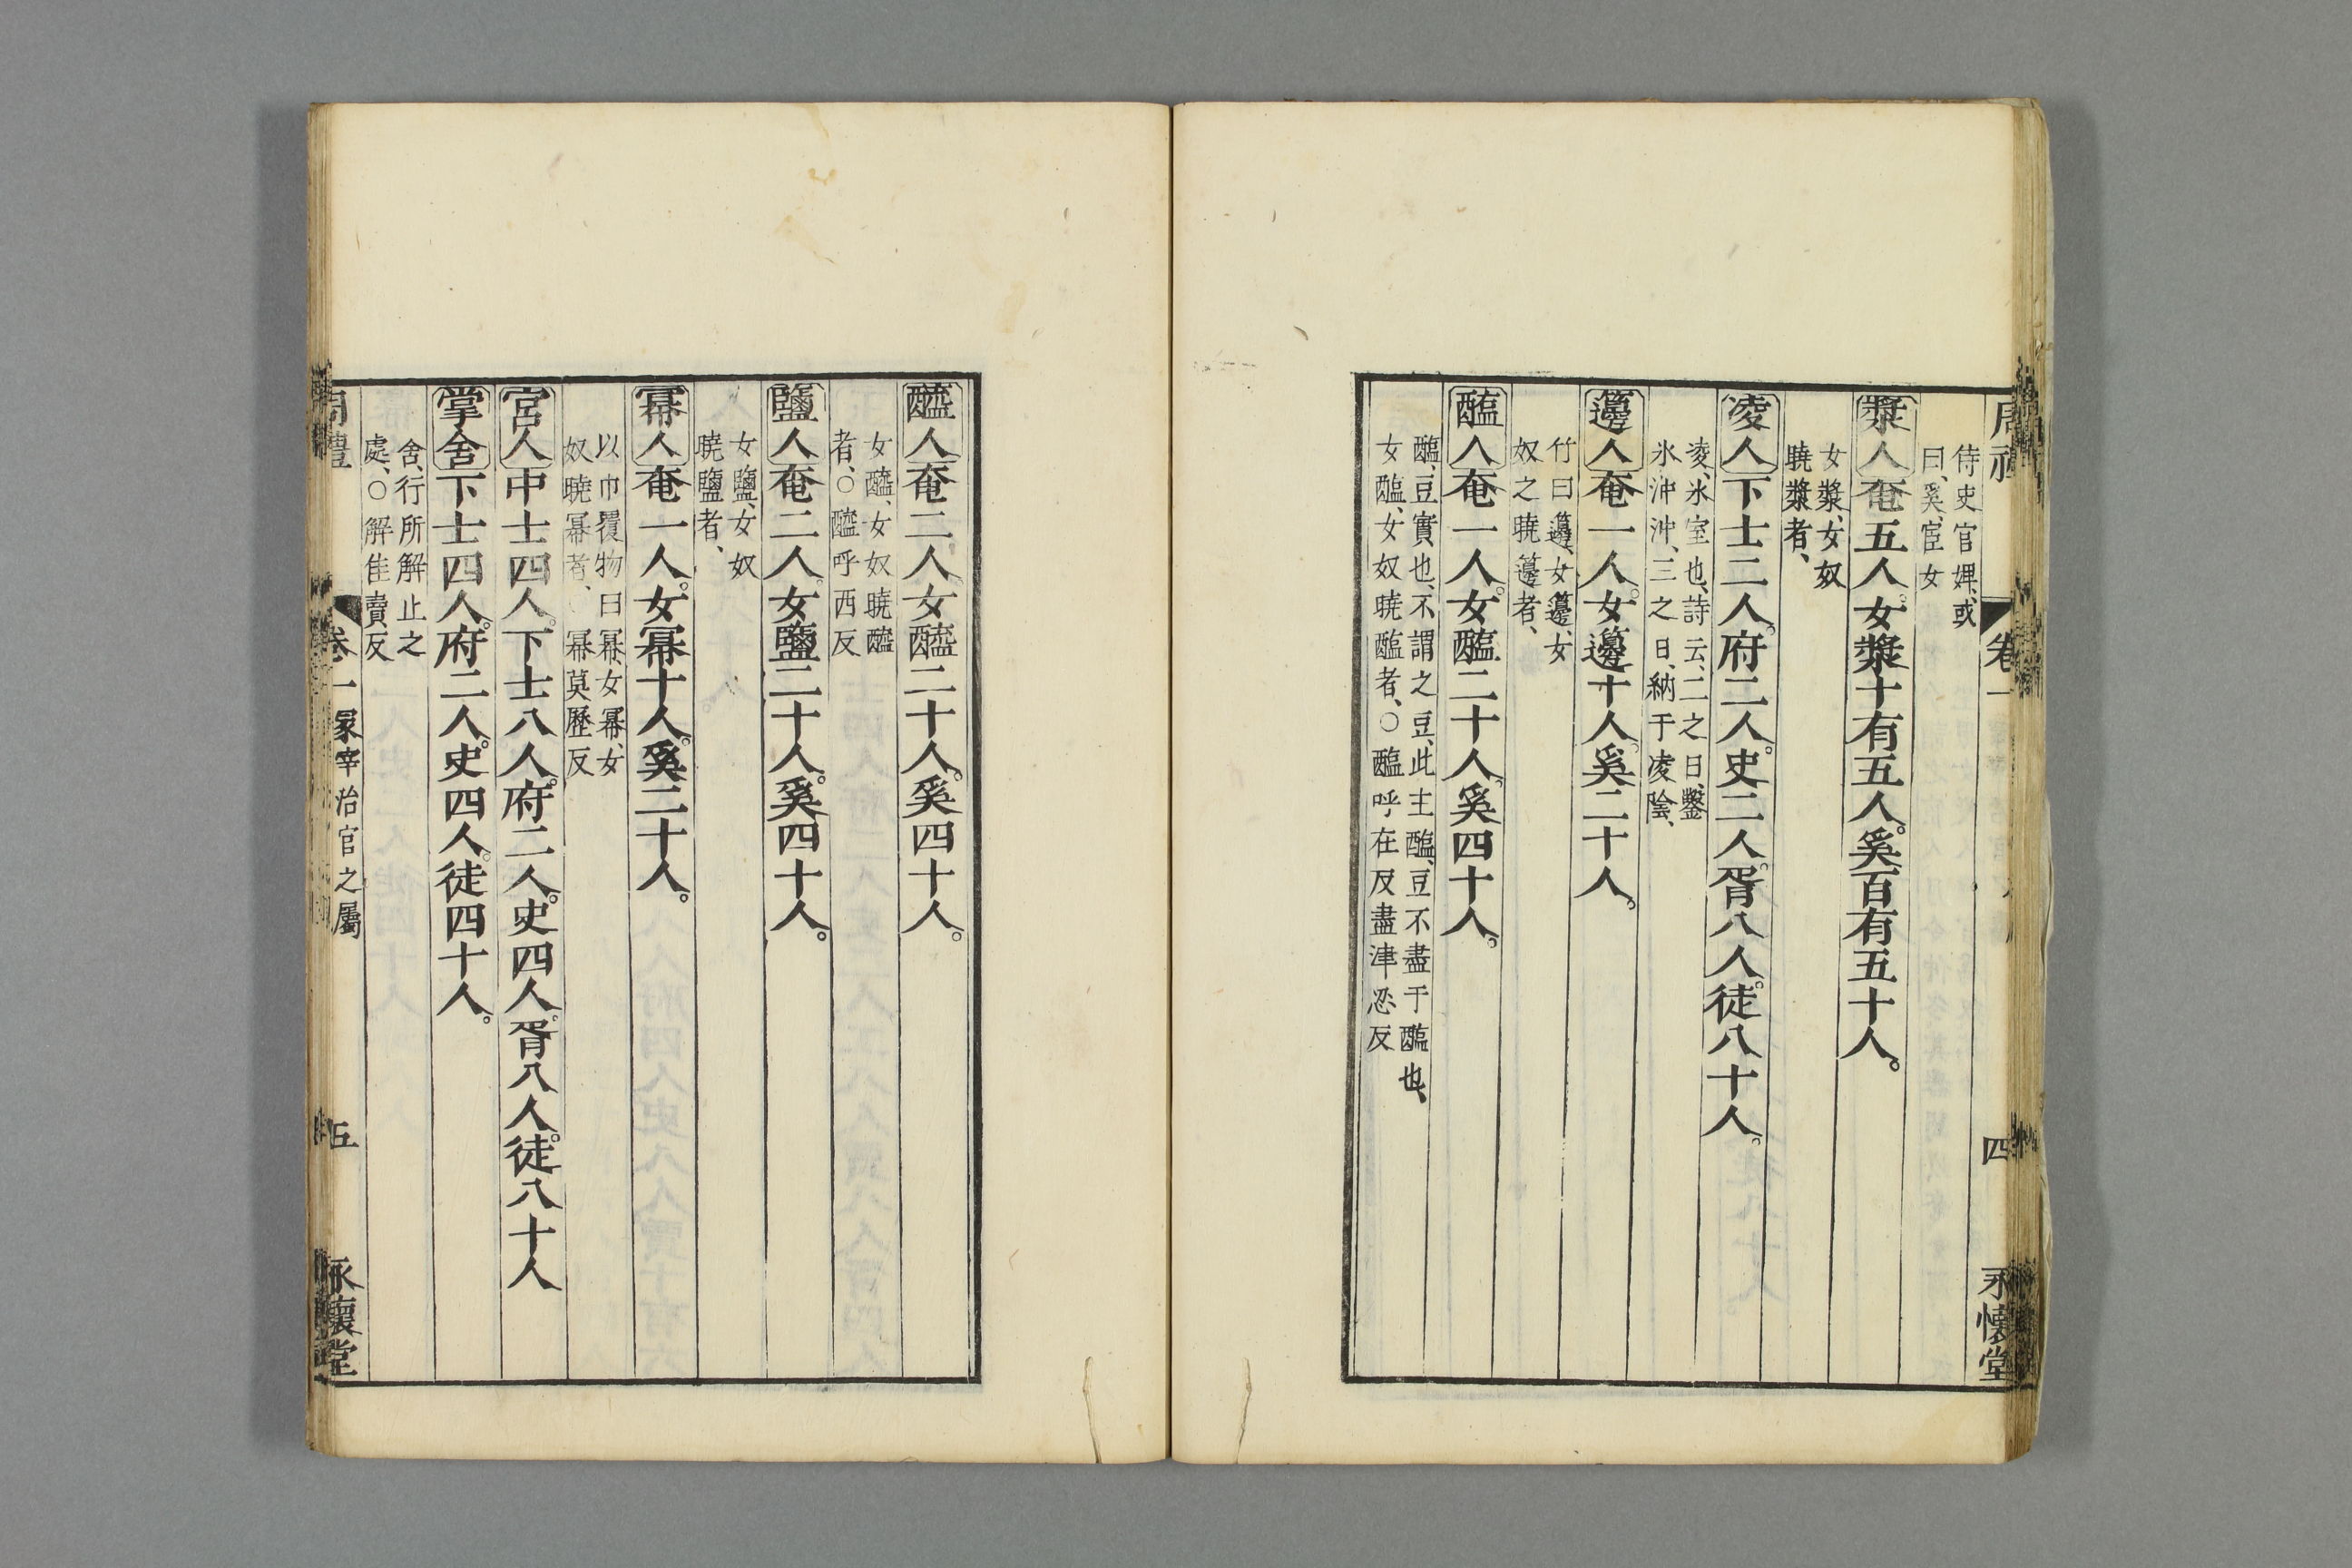 周禮 卷一 四 永懷堂
侍史官婢、或
曰、奚、宦女
漿人奄五人。女漿十有五人。奚百有五十人。
女漿、女奴
曉漿者、
凌人下士二人。府二人。史二人。胥八人。徒八十人。
凌、氷室也、詩云、二之日、鑿
氷沖沖、三之日、納于凌陰、
籩人奄一人。女籩十人。奚二十人。
竹曰籩、女籩、女
奴之曉籩者、
醢人奄一人。女醢二十人。奚四十人。
醢、豆實也、不謂之豆、此主醢、豆不盡于醢也、
女醢、女奴曉醢者、○醢呼在反盡津忍反
醯人奄二人。女醯二十人。奚四十人。
女醯、女奴曉醯
者、○醯呼西反
鹽人奄二人。女鹽二十人。奚四十人。
女鹽、女奴
曉鹽者、
冪人奄一人。女冪十人。奚二十人。
以巾覆物曰冪、女冪、女
奴曉冪者、○冪莫歷反
宮人中士四人。下士八人。府二人。史四人。胥八人。徒八十人
掌舍下士四人。府二人。史四人。徒四十人。
舍、行所解止之
處、○解佳賣反
周禮 卷一 冢宰治官之屬 五 永懷堂